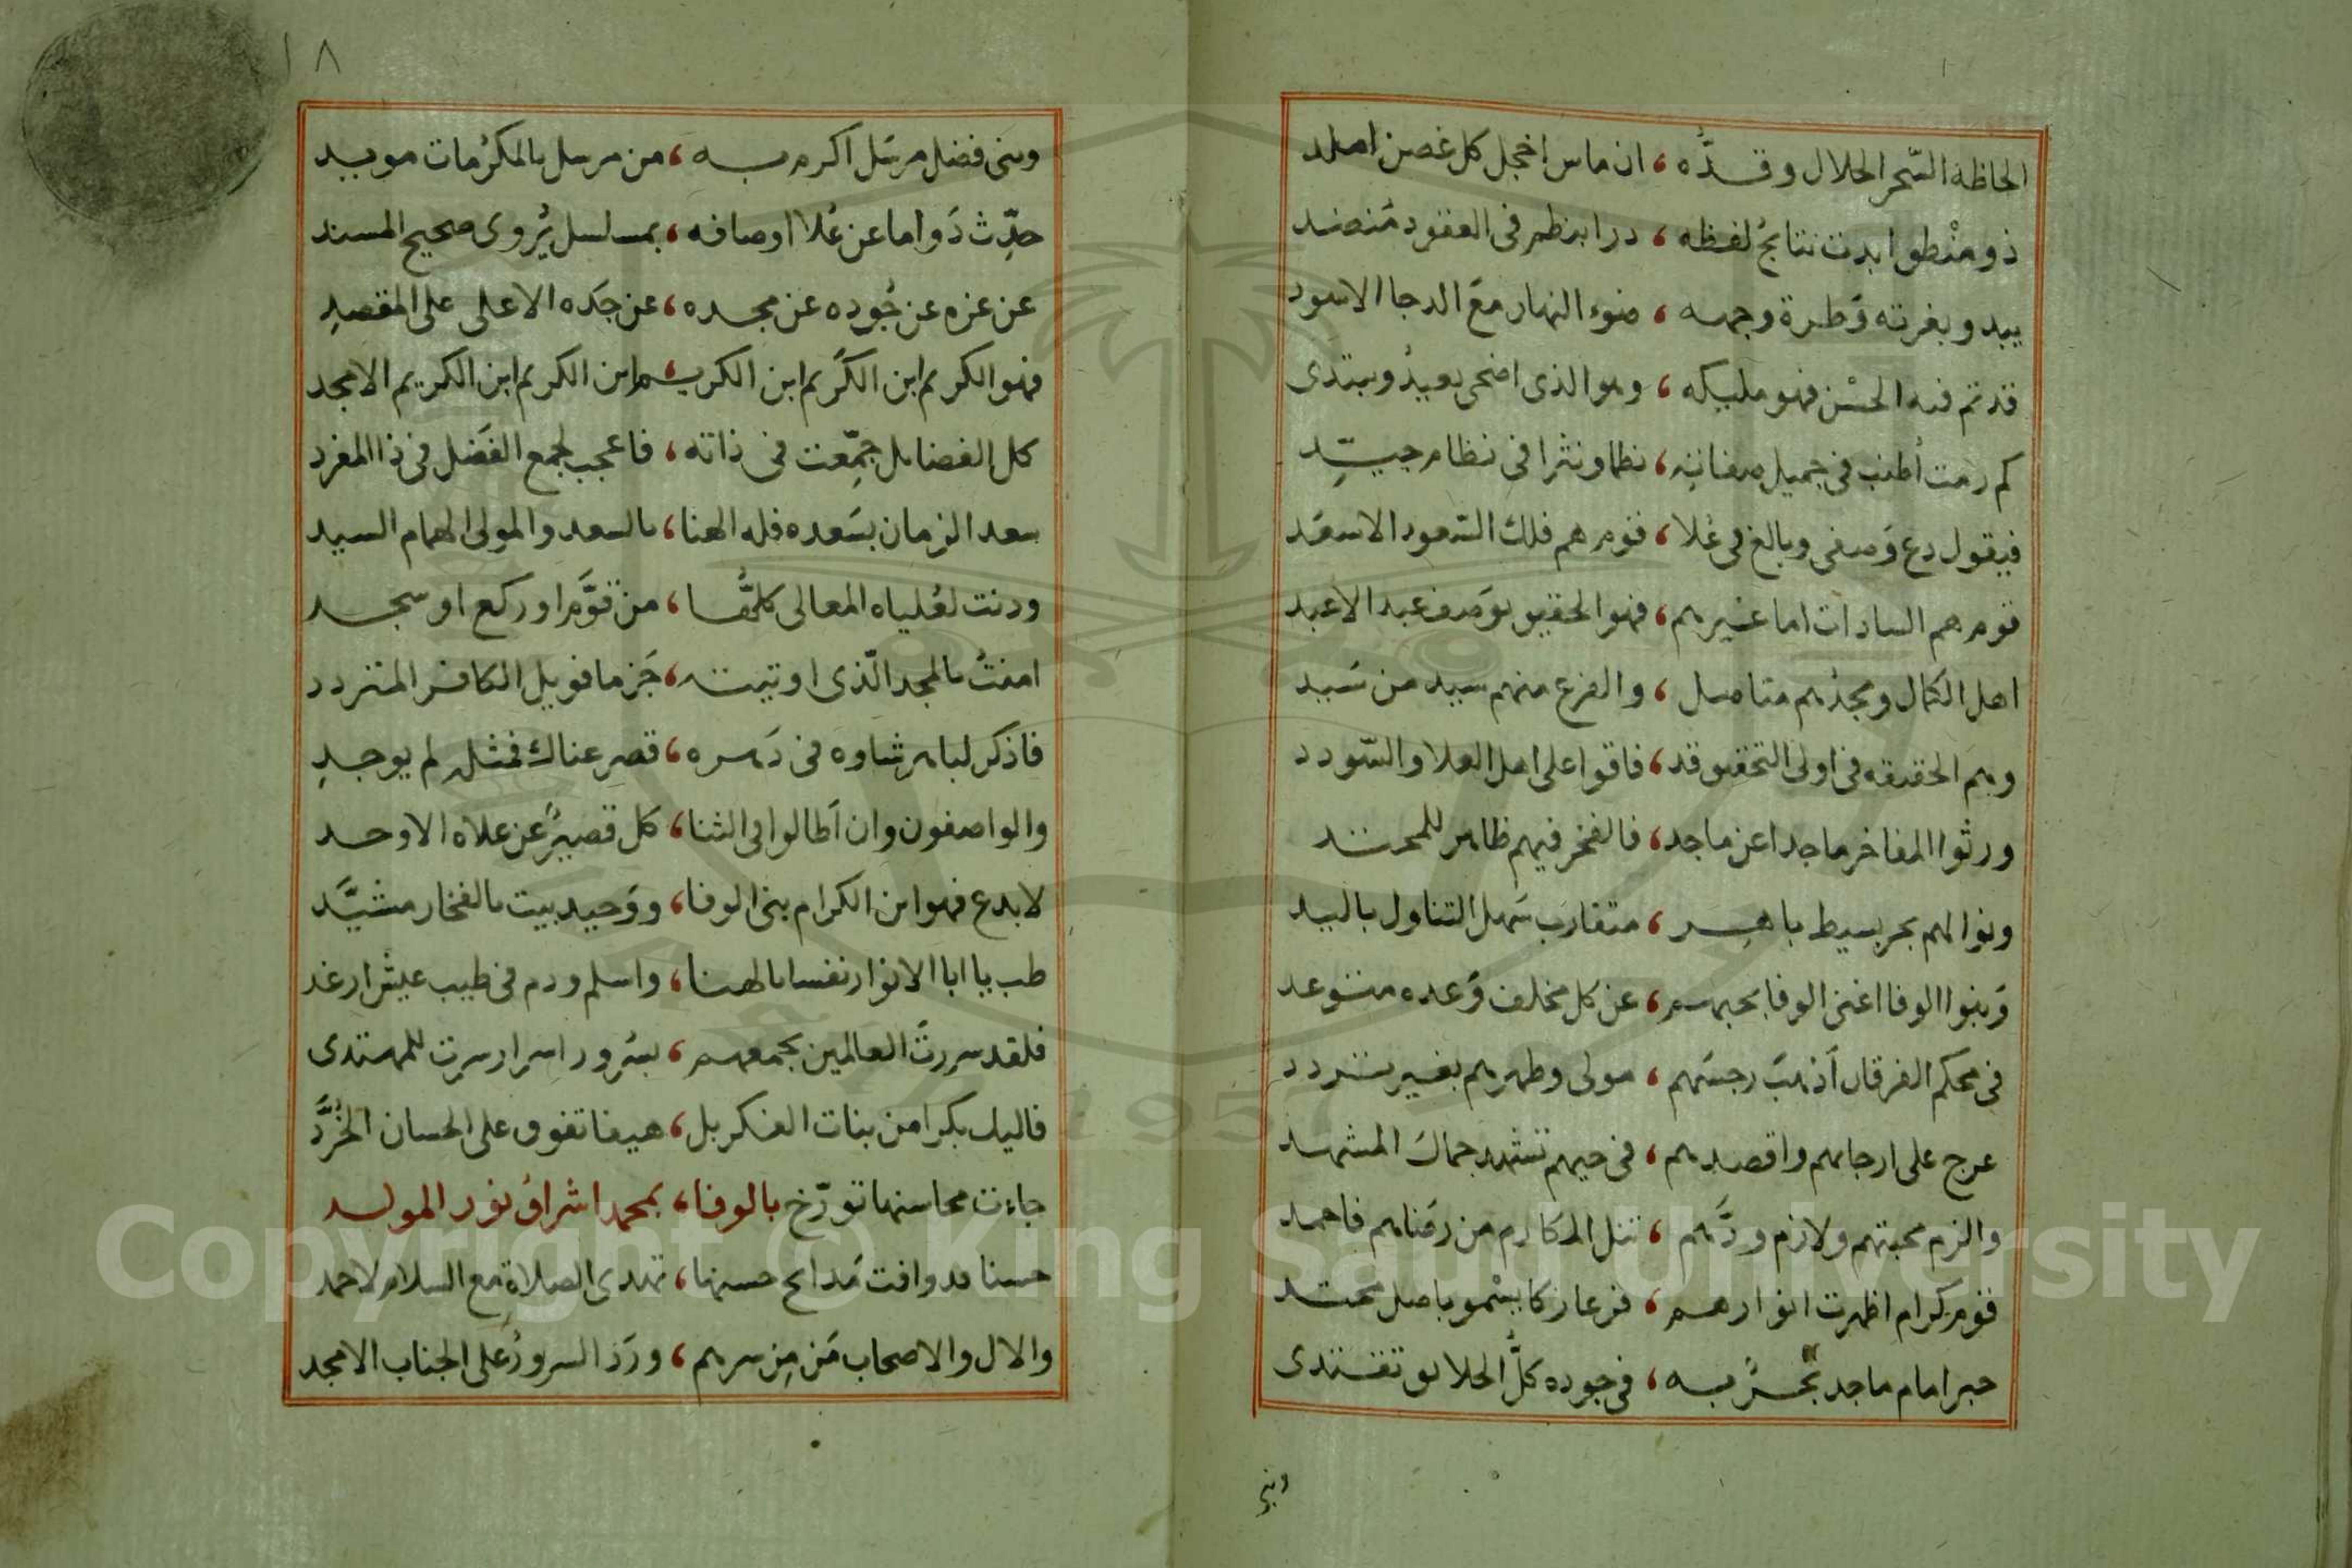 الحاظه السّحر الحلال وقدُّه ، ان ماس اخجل كل غصن املد
ذو منْطق ابدت نتايجُ لفظه ، درا بنظم في العقود مُنضد
يبدو بغرته وَطرة وجهه ، ضوء النهار معَ الدجا الاسود
قد تم فيه الحسْن فهو مليكه ، وهو الذى اضحى يعيدُ ويبتدى
كم رمت أطنب في جميل صفاتِه ، نظما ونثرا في نظام جيّدِ
فيقول دع وَصفى وبالغ في عُلا ، قوم هم فلك السّعود الاسعَد
قوم هم السادات اما غيرهم ، فهو الحقيق بوَصف عبد الاعبد
اهل الكمال ومجدُهم متاصل ، والفرع منهم سيد من سَيد
وهم الحقيقه في اولى التحقيق قد ، فاقوا على اهل العلا والسّودد
ورثوا المفاخر ماجدا عن ماجد ، فالفخر فيهم ظاهر للمحتد
ونوالهم بحر بسيط باهر ، متقارب سَهل التناول باليد
وَبنوا الوفا اغنى الوفا بحبهم ، عن كل مخلف وَعده متوعد
في محكم الفرقان اَذهبَ رجسَهم ، مولى وطهرهم بغير تردد
عرج على ارجائهم واقصدهم ، في حيهم تشهد جمال المشهد
والزم محبتهم ولازم ودَّهم ، تنل المكارم من رضَاهم فاحمد
قوم كرام اظهرت انوارهم ، فرعا زكا يسْمو باصل محتد
حبر امام ماجد بحرٌ به ، في جوده كلُّ الخلايق تقتدى
وبنى
١٨
وبنى فضل مرسَل اكرم به ، من مرسل بالمكرُمات مويد
حدِّث دَواما عن عُلا اوصافه ، بمسلسل يُروى صحيح المسند
عن عزه عن جُوده عن مجده ، عن جَده الاعلى على المقصدِ
فهو الكريم ابن الكَريم ابن الكريم ، ابن الكريم ابن الكريم الامجد
كل الفضايل جمِّعت في ذاته ، فاعجب لجمع الفَضل في ذا المفرد
سعد الزمان بسَعده فله الهنا ، بالسعد والمولى الهمام السيد
ودنت لعُلياه المعالى كلهُّا ، من قوَّم او ركع او سجد
امنتُ بالمجد الّذى اوتيته ، جَزما فويل الكافر المتردد
فاذكر لباهر شاوه في دَهره ، قصر عناك فمثله لم يوجدِ
والواصفون وان اَطالوا في الثنا ، كل قصيرٌ عن علاه الاوحد
لا بدع فهو ابن الكرام بنى الوفا ، ووَحيد بيت بالفخار مشيَّد
طب يا ابا الانوار نفسا بالهنا ، واسلم ودم في طيب عيش ارغد
فلقد سررتَ العالمين بجمعهم ، بسُرور اسرار سرت للمهتدى
فاليك بكرا من بنات الفكر بل ، هيفا تفوق على الحسان الخُرَّد
جاءت محاسنها تورّخ بالوفا ، بمحمد اشراقُ نور المولد
حسنا قد وافت مَدائح حسنها ، تهدى الصلاة مع السلام لاحمد
والال والاصحاب مَن مِن سرهم ، ورَد السرورُ على الجناب الامجد
Copyright © King Saud University
1957